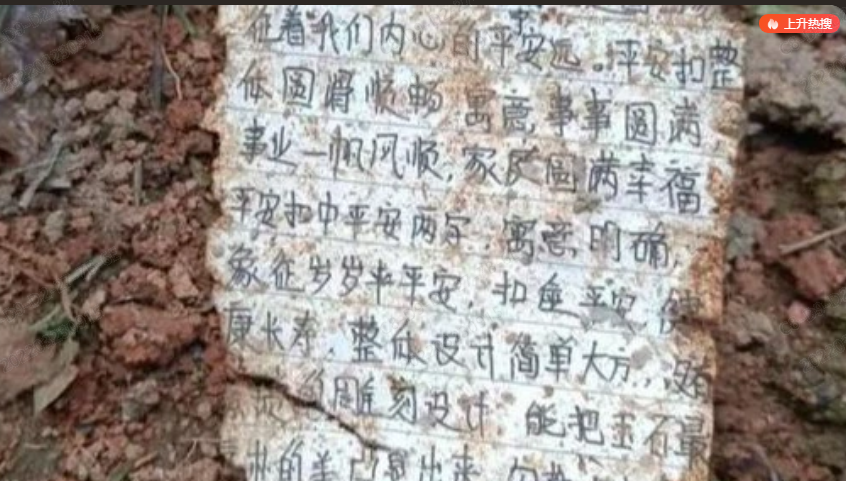 上升热搜
征着我们内心的平安远。平安扣整
体圆滑顺畅 寓意,事事圆满,
事业一帆风顺,家庭圆满幸福
平安扣中平安两字,寓意,明确,
象征岁岁平平安,扣住平安,健
康长寿,整体设计简单大方,
雕刻设计 能把玉石最
的美凸显出来